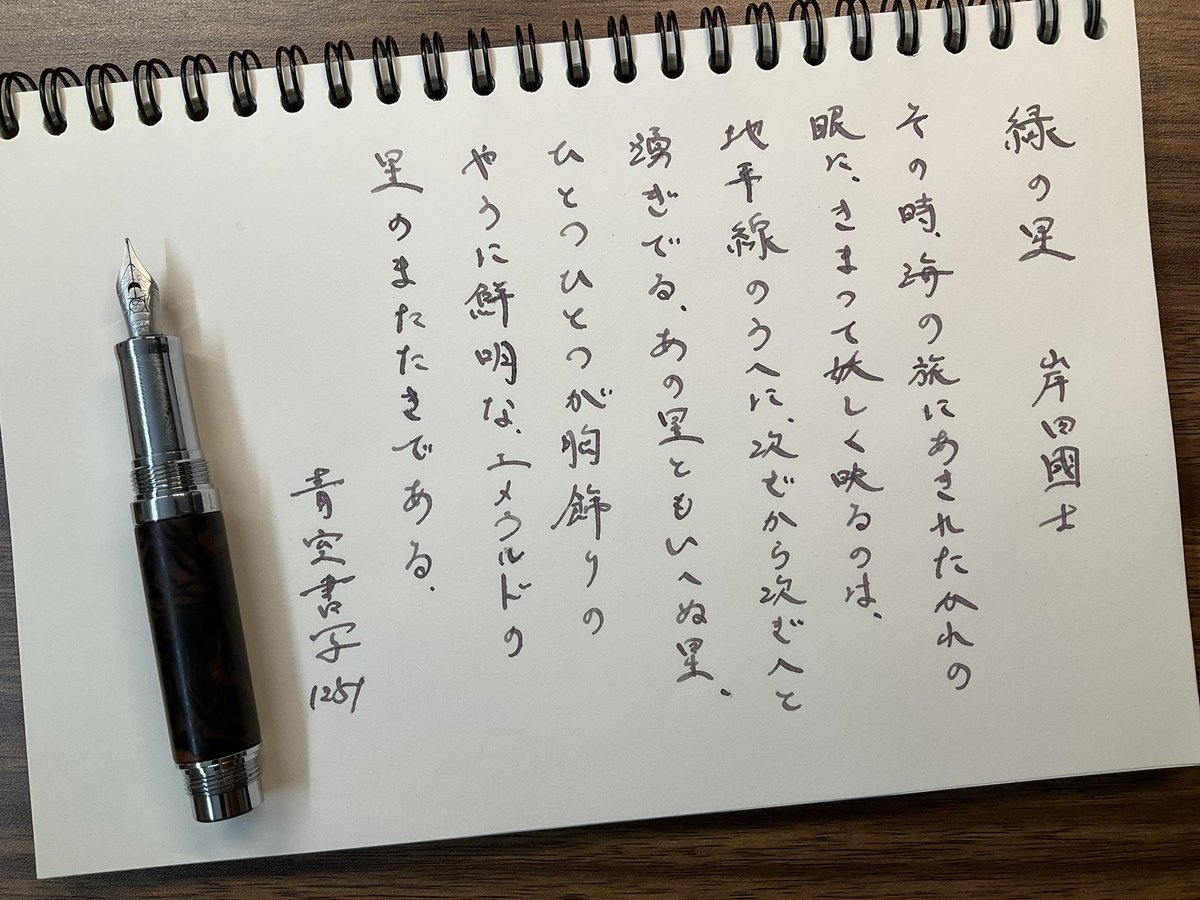 緑の星　岸田國士
その時、海の旅にあきれたかれの
眼に、きまって妖しく映るのは、
地平線のうへに、次ぎから次ぎへと
湧ぎでる、あの星ともいへぬ星、
ひとつひとつが胸飾りの
やうに鮮明な、エメラルドの
星のまたたきである。
青空書写
1251